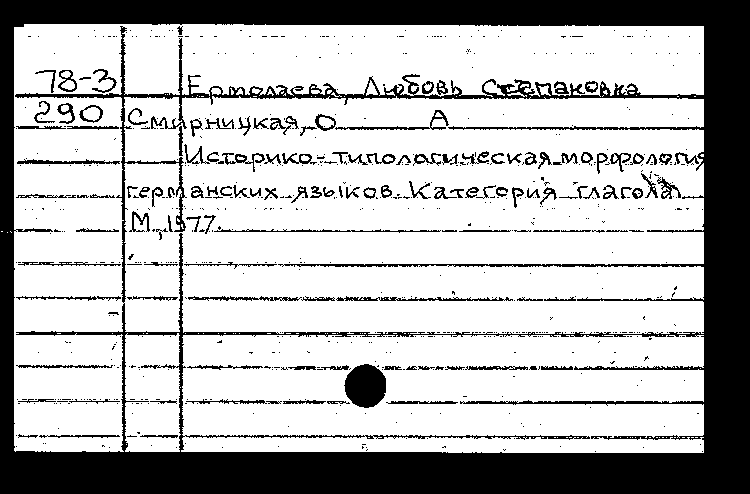 78-3 Ермолаева, Любовь Степаковка
290 Смирницкая, О А
Историко-типологическая морфология
германских языков. Категория глагола.
М., 1977.